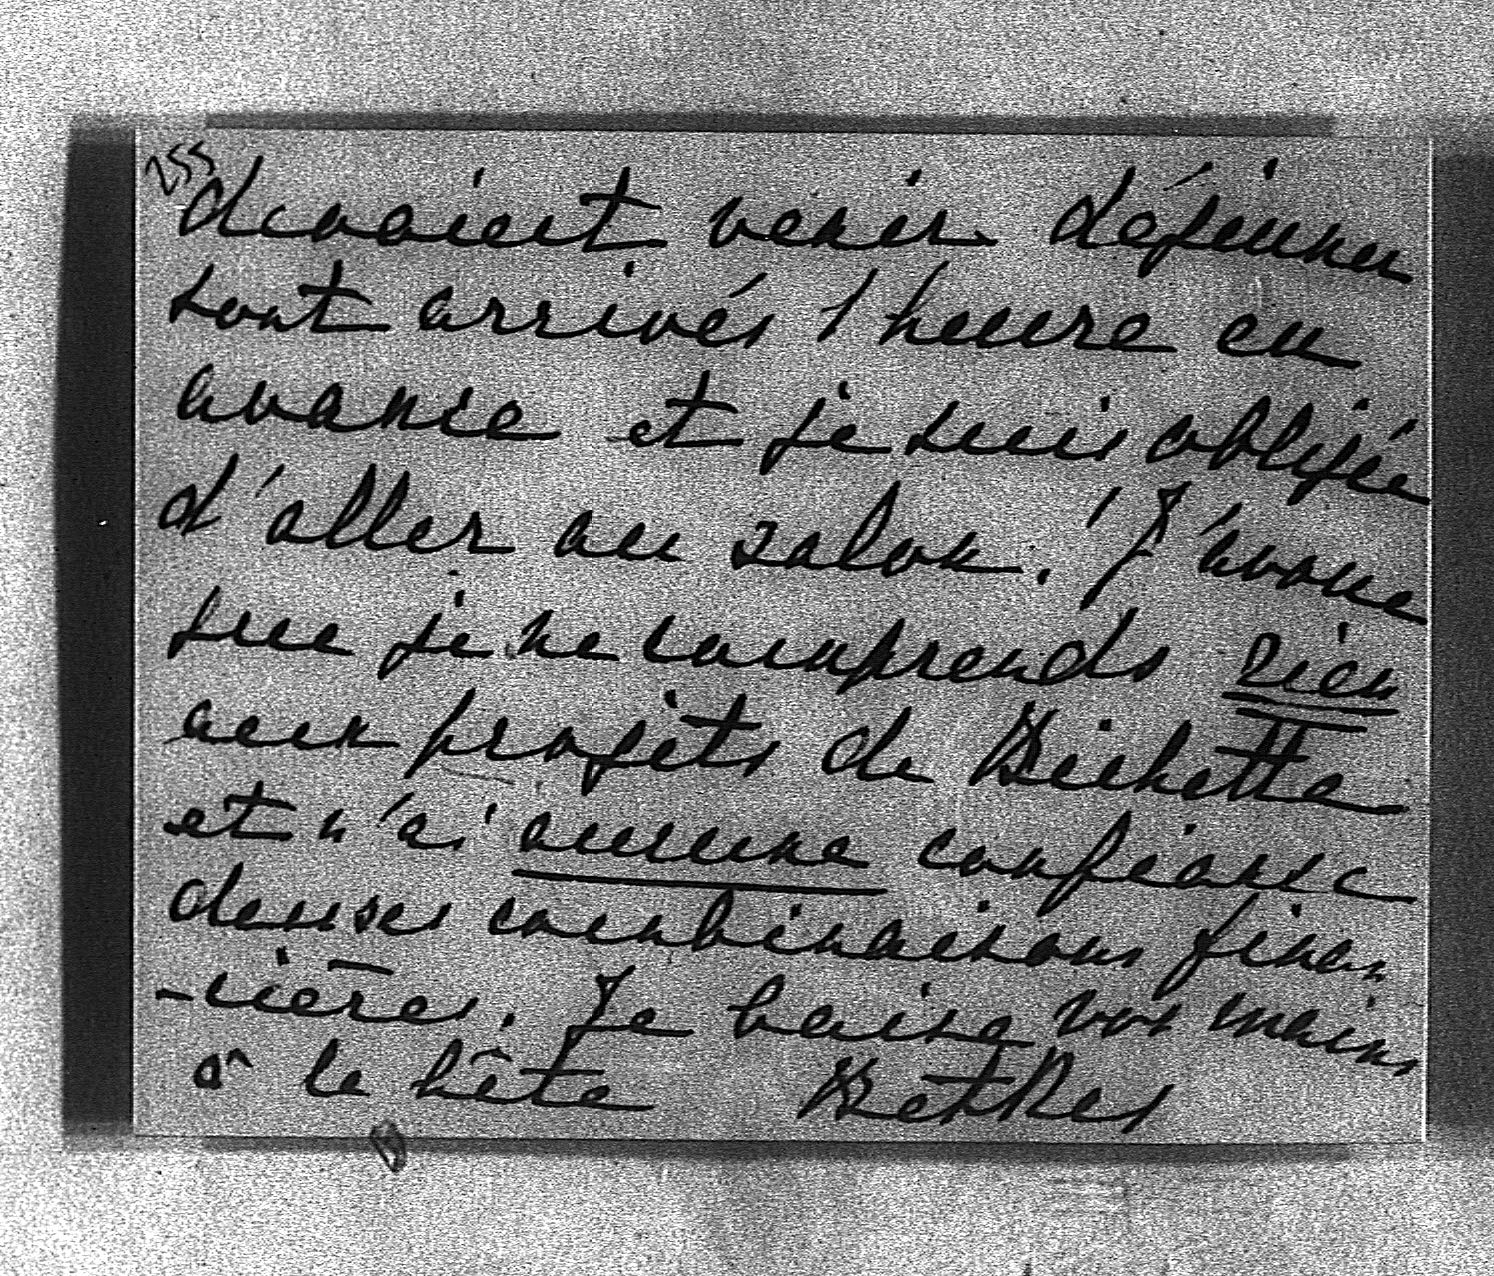 255
devaient venir déjeuner
sont arrivés 1 heure en
avance et je suis obligée
d'aller au salon. ! J'avoue
que je ne comprends rien
aux projets de Bichette
et n'ai aucune confiance
dans ses combinaisons finan
-cières. Je baise vos mains
à la hâte